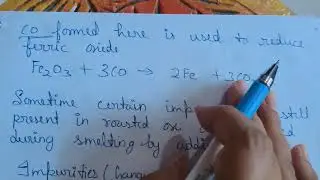 CO formed here is used to reduce
ferric oxide
Fe₂O₃ + 3CO → 2Fe + 3CO
Sometime certain imp still
present in roasted
during smelting by addi
Impurities (